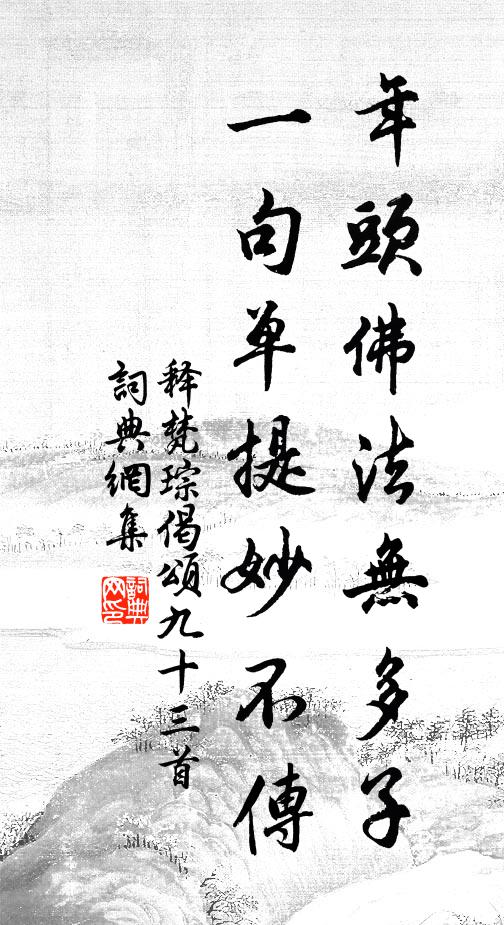 年頭佛法無多子
一句单提妙不傳
释梵琮偈頌九十三首
詞典網集
詞典网印